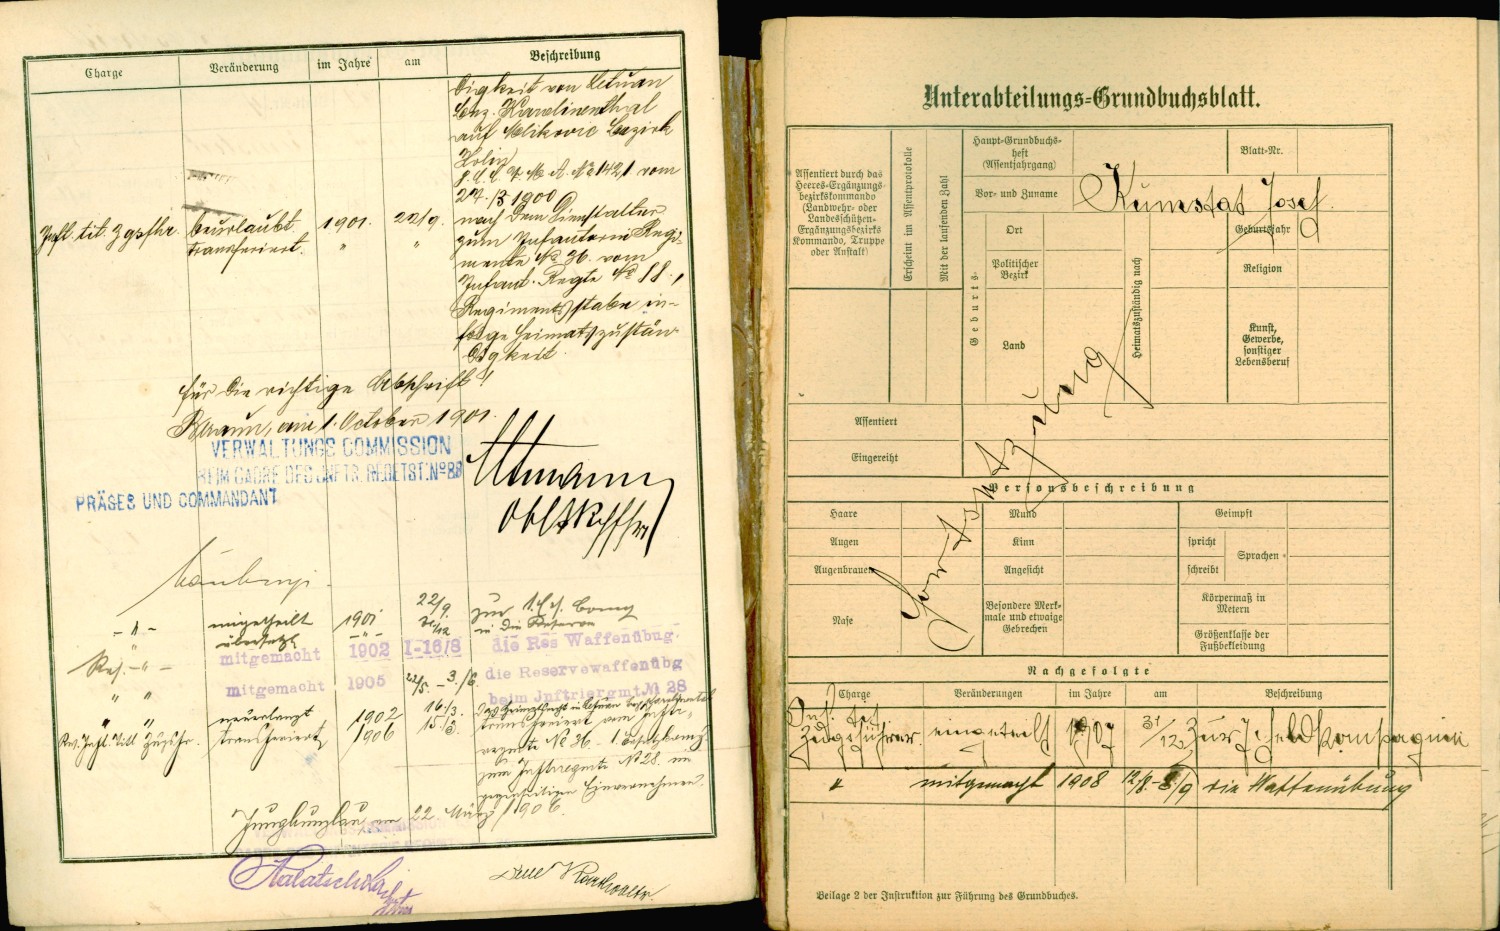 Charge Veränderung im Jahre am Beschreibung
digkeit von
Bez. Karolinenthal
auf Bezirk
Kolin
No 1421 vom
27./3 1900
Inft. tit. Zgsfhr. beurlaubt 1901. 22/9. nach dem Dienstalter
transferiert. " " zum Infanterie Regi-
mente No 36. vom
Infant. Regte No 88.,
Regiments/stabe in-
folge Heimatszustän-
digkeit.
Für die richtige Abschrift!
Beraun, am 1. October 1901.
VERWALTUNGS COMMISSION
BEIM CADRE DES INFTR. REGETST. No 88
PRÄSES UND COMMANDANT
-"- eingetheilt 1901 22/9 zur
übersetzt -"- 31/12 in die Reserve
Res. -"- mitgemacht 1902 1-16/8 die Res Waffenübug.
" " mitgemacht 1905 22/5. - 3./6. die Reservewaffenübg
beim Jnftriergmt. No 28
" " 1902 16./3.
Res. Inft. Titl Zugsfr. transferiert 1906 15/3. transferiert vom Inftr-
regmte No 36 - 1.
zum Inftregmte No 28. im
gegenseitigen Einvernehmen.
Jungbunzlau, am 22. März 1906.
Unterabteilungs-Grundbuchsblatt.
Assentiert durch das
Heeres-Ergänzungs-
bezirkskommando
(Landwehr- oder
Landesschützen-
Ergänzungsbezirks
Kommando, Truppe
oder Anstalt)
Erscheint im Assentprotokolle
Mit der laufenden Zahl
Haupt-Grundbuchs-
heft
(Assentjahrgang)
Blatt-Nr.
Vor- und Zuname Kunstat Josef.
Geburts-
Ort
Politischer
Bezirk
Land
Heimatszuständig nach
Geburtsjahr
Religion
Kunst,
Gewerbe,
sonstiger
Lebensberuf
Assentiert
Eingereiht
Fortsetzung
Personsbeschreibung
Haare Mund Geimpft
Augen Kinn spricht Sprachen
Augenbrauen Angesicht schreibt
Nase Besondere Merk-
male und etwaige
Gebrechen
Körpermaß in
Metern
Größenklasse der
Fußbekleidung
Nachgefolgte
Charge Veränderungen im Jahre am Beschreibung
Inf. tit.
Zugsführer. eingeteilt 1907 31/12 Zur 7 Feldkompagnie
" mitgemacht 1908 12/8.-8/9 die Waffenübung
Beilage 2 der Instruktion zur Führung des Grundbuches.